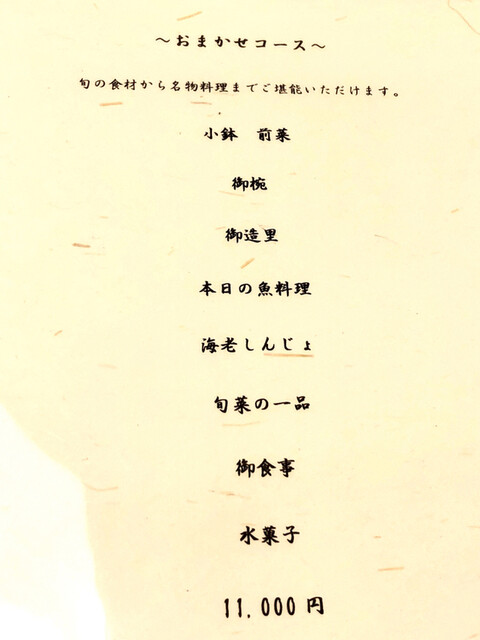 ～おまかせコース～
旬の食材から名物料理までご堪能いただけます。
小鉢　前菜
御椀
御造里
本日の魚料理
海老しんじょ
旬菜の一品
御食事
水菓子
11,000円